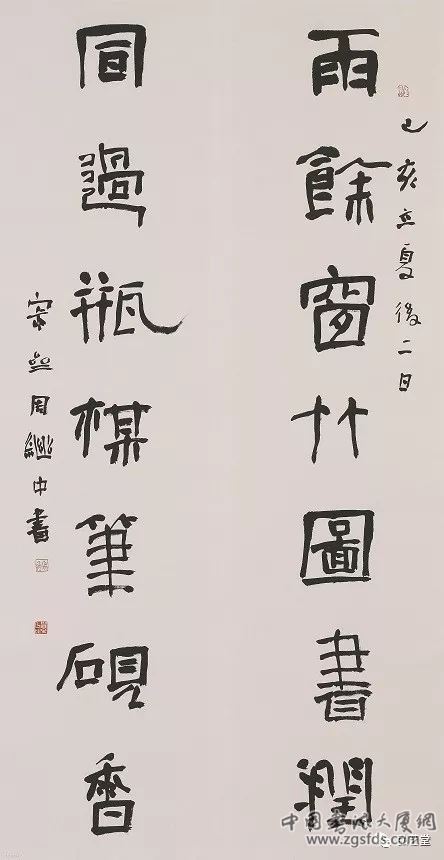 己亥立夏後二日
雨餘窗竹圖書潤
風過瓶楳筆硯香
周繼中書
中国书法大厦网
www.zgsfds.com